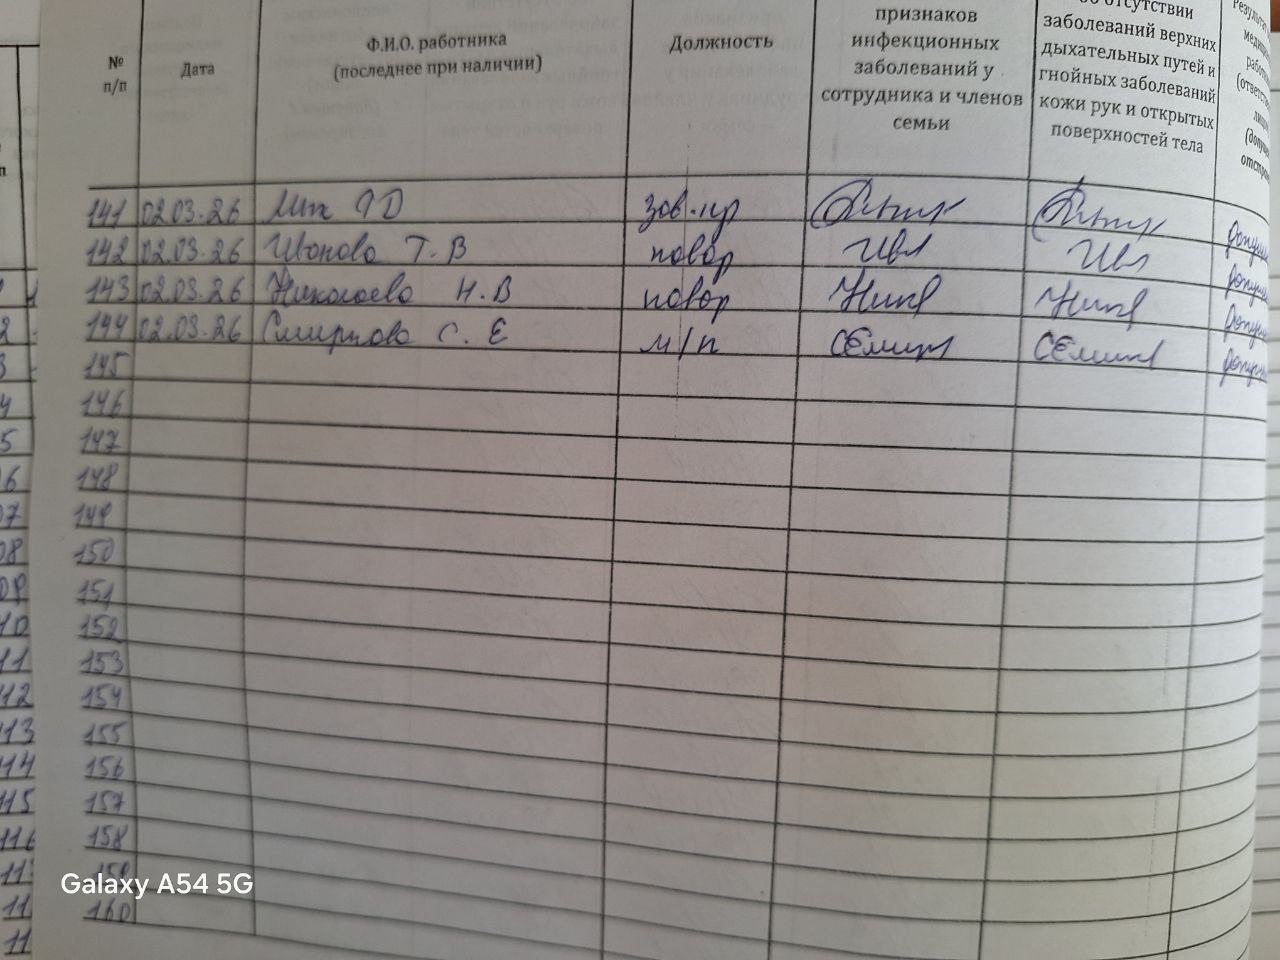 № п/п
Дата
Ф.И.О. работника
(последнее при наличии)
Должность
признаков
инфекционных
заболеваний у
сотрудника и членов
семьи
об отсутствии
заболеваний верхних
дыхательных путей и
гнойных заболеваний
кожи рук и открытых
поверхностей тела
141 02.03.26 зав.пр
142 02.03.26 Иванова Т.В повар Ивл Ивл
143 02.03.26 Николаева Н.В повар Ник Ник
144 02.03.26 Смирнова С.Е м/п
145
146
147
148
149
150
151
152
153
154
155
156
157
158
159
160
Galaxy A54 5G